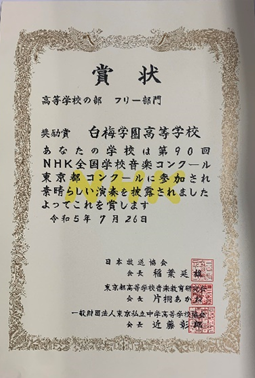 賞状
高等学校の部 フリー部門
奨励賞 白梅学園高等学校
あなたの学校は第90回
NHK全国学校音楽コンクール
東京都コンクールに参加され
素晴らしい演奏を披露されました
よってこれを賞します
令和5年7月26日
日本放送協会
会長 稲葉延雄
東京都高等学校音楽教育研究会
会長 片桐あかね
一般財団法人東京私立中学高等学校協会
会長 近藤彰郎